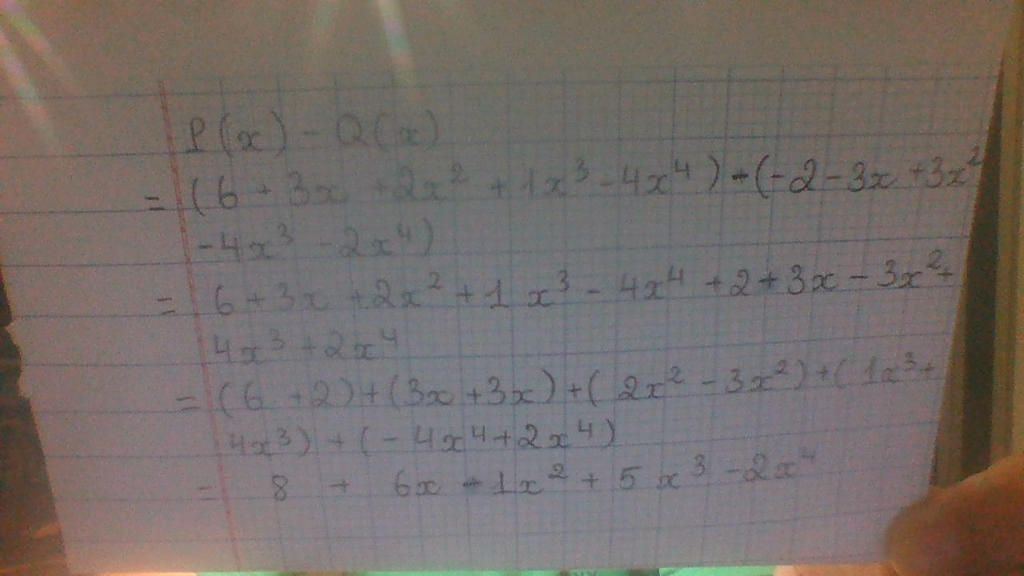 P(x) - Q(x)
= (6 + 3x + 2x² + 1x³ - 4x⁴) - (-2 - 3x + 3x²
- 4x³ - 2x⁴)
= 6 + 3x + 2x² + 1x³ - 4x⁴ + 2 + 3x - 3x² +
4x³ + 2x⁴
= (6 + 2) + (3x + 3x) + (2x² - 3x²) + (1x³ +
4x³) + (-4x⁴ + 2x⁴)
= 8 + 6x - 1x² + 5x³ - 2x⁴